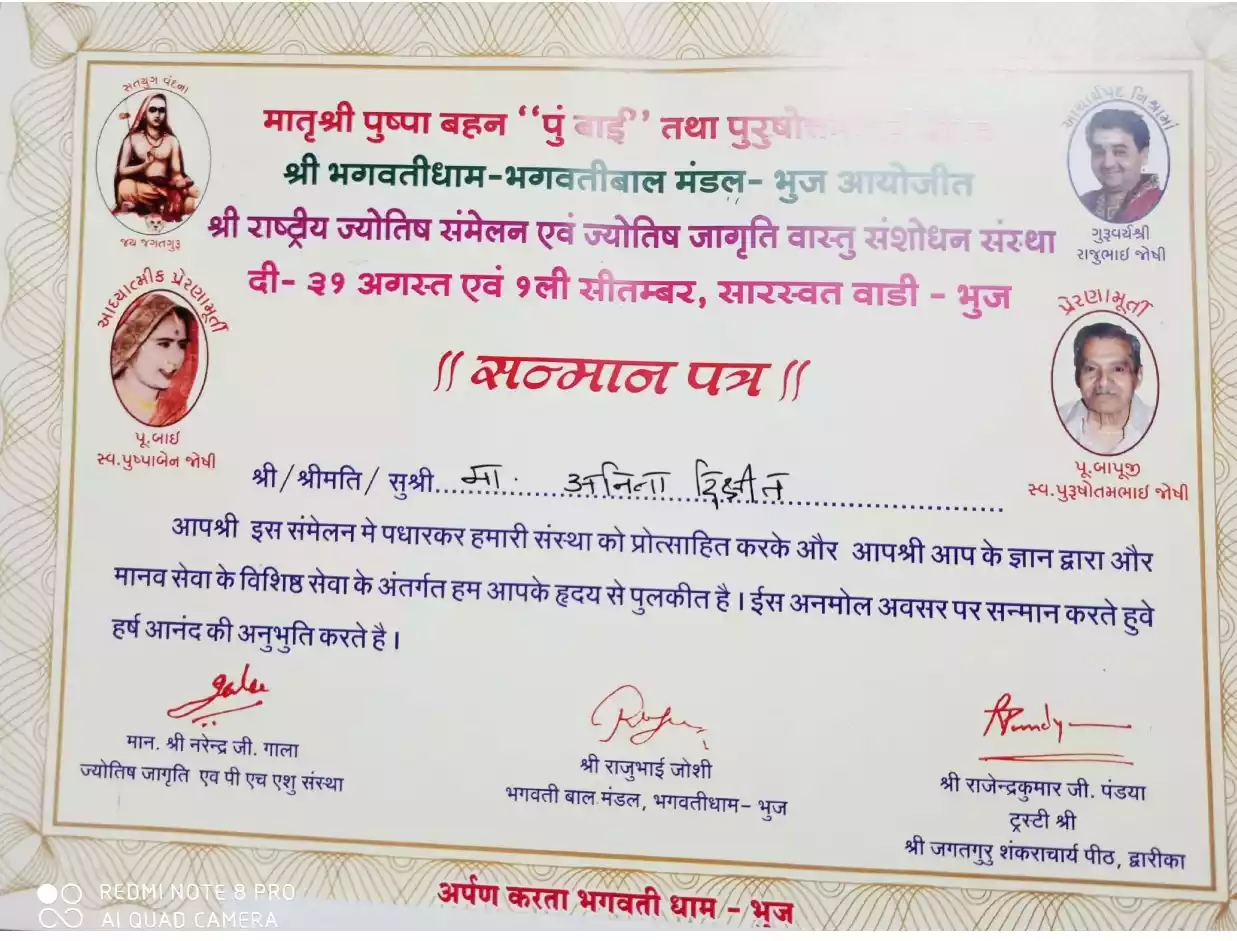 સતયુગ વંદના
જય જગતગુરૂ
આચાર્યપદ નિશ્રામાં
ગુરૂવર્યશ્રી
રાજુભાઈ જોષી
मातृश्री पुष्पा बहन ‘‘पुं बाई’’ तथा
श्री भगवतीधाम-भगवतीबाल मंडल- भुज आयोजीत
श्री राष्ट्रीय ज्योतिष संमेलन एवं ज्योतिष जागृति वास्तु संशोधन संस्था
दी- ३१ अगस्त एवं १ली सीतम्बर, सारस्वत वाडी - भुज
આધ્યાત્મીક પ્રેરણામૂર્તી
પૂ.બાઈ
સ્વ.પુષ્પાબેન જોષી
પ્રેરણામૂર્તી
પૂ.બાપૂજી
સ્વ.પુરૂષોતમભાઈ જોષી
// सन्मान पत्र //
श्री/श्रीमति/ सुश्री मा. अनिता दिक्षीत
आपश्री इस संमेलन मे पधारकर हमारी संस्था को प्रोत्साहित करके और आपश्री आप के ज्ञान द्वारा और
मानव सेवा के विशिष्ठ सेवा के अंतर्गत हम आपके हृदय से पुलकीत है । ईस अनमोल अवसर पर सन्मान करते हुवे
हर्ष आनंद की अनुभुति करते है ।
मान. श्री नरेन्द्र जी. गाला
ज्योतिष जागृति एव पी एच एशु संस्था
श्री राजुभाई जोशी
भगवती बाल मंडल, भगवतीधाम- भुज
श्री राजेन्द्रकुमार जी. पंडया
ट्रस्टी श्री
श्री जगतगुरु शंकराचार्य पीठ, द्वारीका
अर्पण करता भगवती धाम - भुज
REDMI NOTE 8 PRO
AI QUAD CAMERA